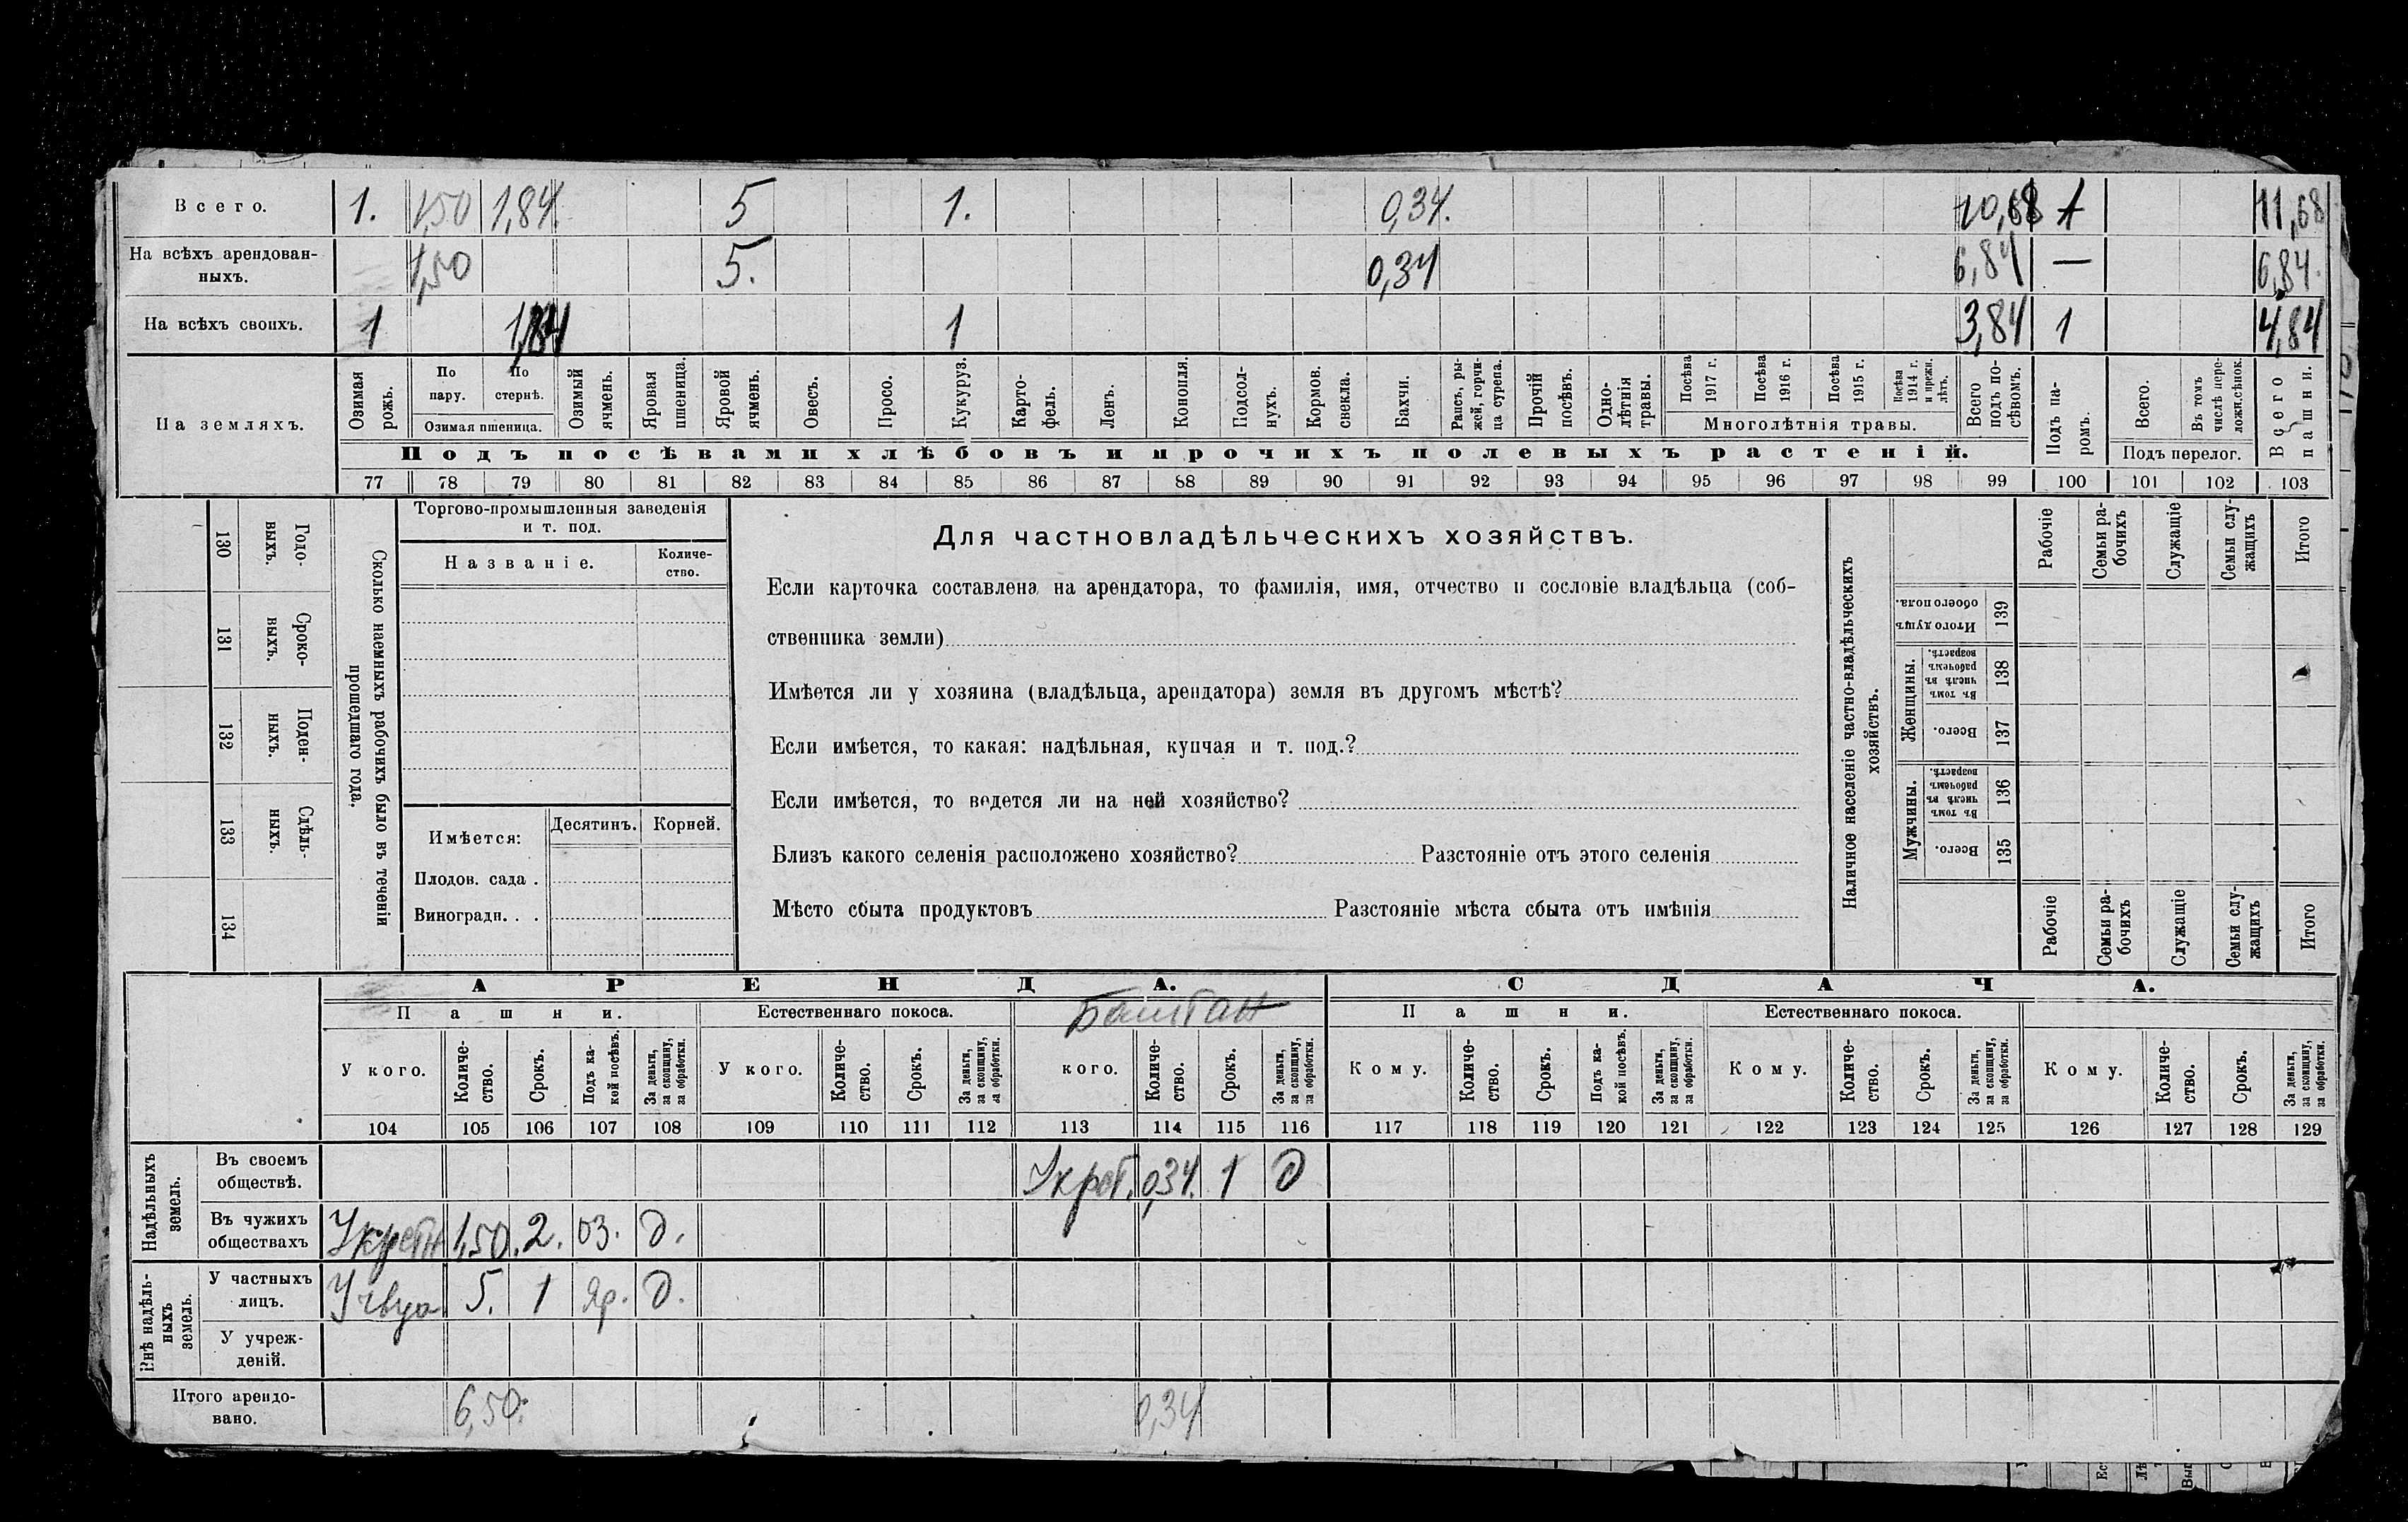 Всего. 1. 1,50 1,84. 5 1. 0,34. 10,68 1 11,68
На всѣхъ арендован-
ныхъ. 1,50 5. 0,34 6,84 — 6,84.
На всѣхъ своихъ. 1 1,84 1 3,84 1 4,84
На земляхъ.
Озимая рожь.
По пару.
По стернѣ.
Озимая пшеница.
Озимый ячмень.
Яровая пшеница.
Яровой ячмень.
Овесъ.
Просо.
Кукуруз.
Карто-
фель.
Ленъ.
Конопля.
Подсол-
нухъ.
Кормов. свекла.
Бахчи.
Рапсъ, ры-
жей, горчи-
ца сурепа.
Прочій посѣвъ.
Одно-
лѣтнія травы.
Посѣва 1917 г.
Посѣва 1916 г.
Посѣва 1915 г.
Посѣва 1914 г. и прежн. лѣтъ.
Многолѣтнія травы.
Всего подъ по-
сѣвомъ.
Подъ па-
ромъ.
Всего.
Въ томъ числѣ пере-
ложн.сѣнок.
Подъ перелог.
Всего пашни.
Подъ посѣвами хлѣбовъ и прочихъ полевыхъ растеній.
77 78 79 80 81 82 83 84 85 86 87 88 89 90 91 92 93 94 95 96 97 98 99 100 101 102 103
130 Годо-
выхъ.
131 Сроко-
ныхъ.
132 Поден-
ныхъ.
133 Сдѣль-
ныхъ.
134
Сколько наемныхъ рабочихъ было въ теченіи
прошедшаго года.
Торгово-промышленныя заведенія
и т. под.
Названіе.
Количе-
ство.
Имѣется: Десятинъ. Корней.
Плодов. сада .
Виноградн. . .
Для частновладѣльческихъ хозяйствъ.
Если карточка составлена на арендатора, то фамилія, имя, отчество и сословіе владѣльца (соб-
ственника земли)
Имѣется ли у хозяина (владѣльца, арендатора) земля въ другомъ мѣстѣ?
Если имѣется, то какая: надѣльная, купчая и т. под.?
Если имѣется, то ведется ли на ней хозяйство?
Близъ какого селенія расположено хозяйство? Разстояніе отъ этого селенія
Мѣсто сбыта продуктовъ Разстояніе мѣста сбыта отъ имѣнія
Наличное населеніе частно-владѣльческихъ
хозяйствъ.
Рабочіе
Семьи ра-
бочихъ
Служащіе
Семьи слу-
жащихъ
Итого
Итого душъ обоего пола. 139
Женщины.
Въ томъ числѣ въ рабочемъ возрастѣ. 138
Всего. 137
Мужчины.
Въ томъ числѣ въ рабочемъ возрастѣ. 136
Всего. 135
Рабочіе
Семьи ра-
бочихъ
Служащіе
Семьи слу-
жащихъ
Итого
АРЕНДА. СДАЧА.
Пашни. Естественнаго покоса. Баштан Пашни. Естественнаго покоса.
У кого.
Количе-
ство.
Срокъ.
Подъ ка-
кой посѣвъ.
За деньги, за скопщину, за обработки.
У кого.
Количе-
ство.
Срокъ.
За деньги, за скопщину, за обработки.
кого.
Количе-
ство.
Срокъ.
За деньги, за скопщину, за обработки.
Кому.
Количе-
ство.
Срокъ.
Подъ ка-
кой посѣвъ.
За деньги, за скопщину, за обработки.
Кому.
Количе-
ство.
Срокъ.
За деньги, за скопщину, за обработки.
Кому.
Количе-
ство.
Срокъ.
За деньги, за скопщину, за обработки.
104 105 106 107 108 109 110 111 112 113 114 115 116 117 118 119 120 121 122 123 124 125 126 127 128 129
Надѣльныхъ земель.
Въ своемъ
обществѣ. У крест. 0,34. 1 д
Въ чужихъ
обществахъ У крестн 1,50. 2. оз. д.
Внѣ надѣль-
ныхъ земель.
У частныхъ
лицъ. У 5. 1 яр. д.
У учреж-
деній.
Итого арендо-
вано. 6,50. 0,34